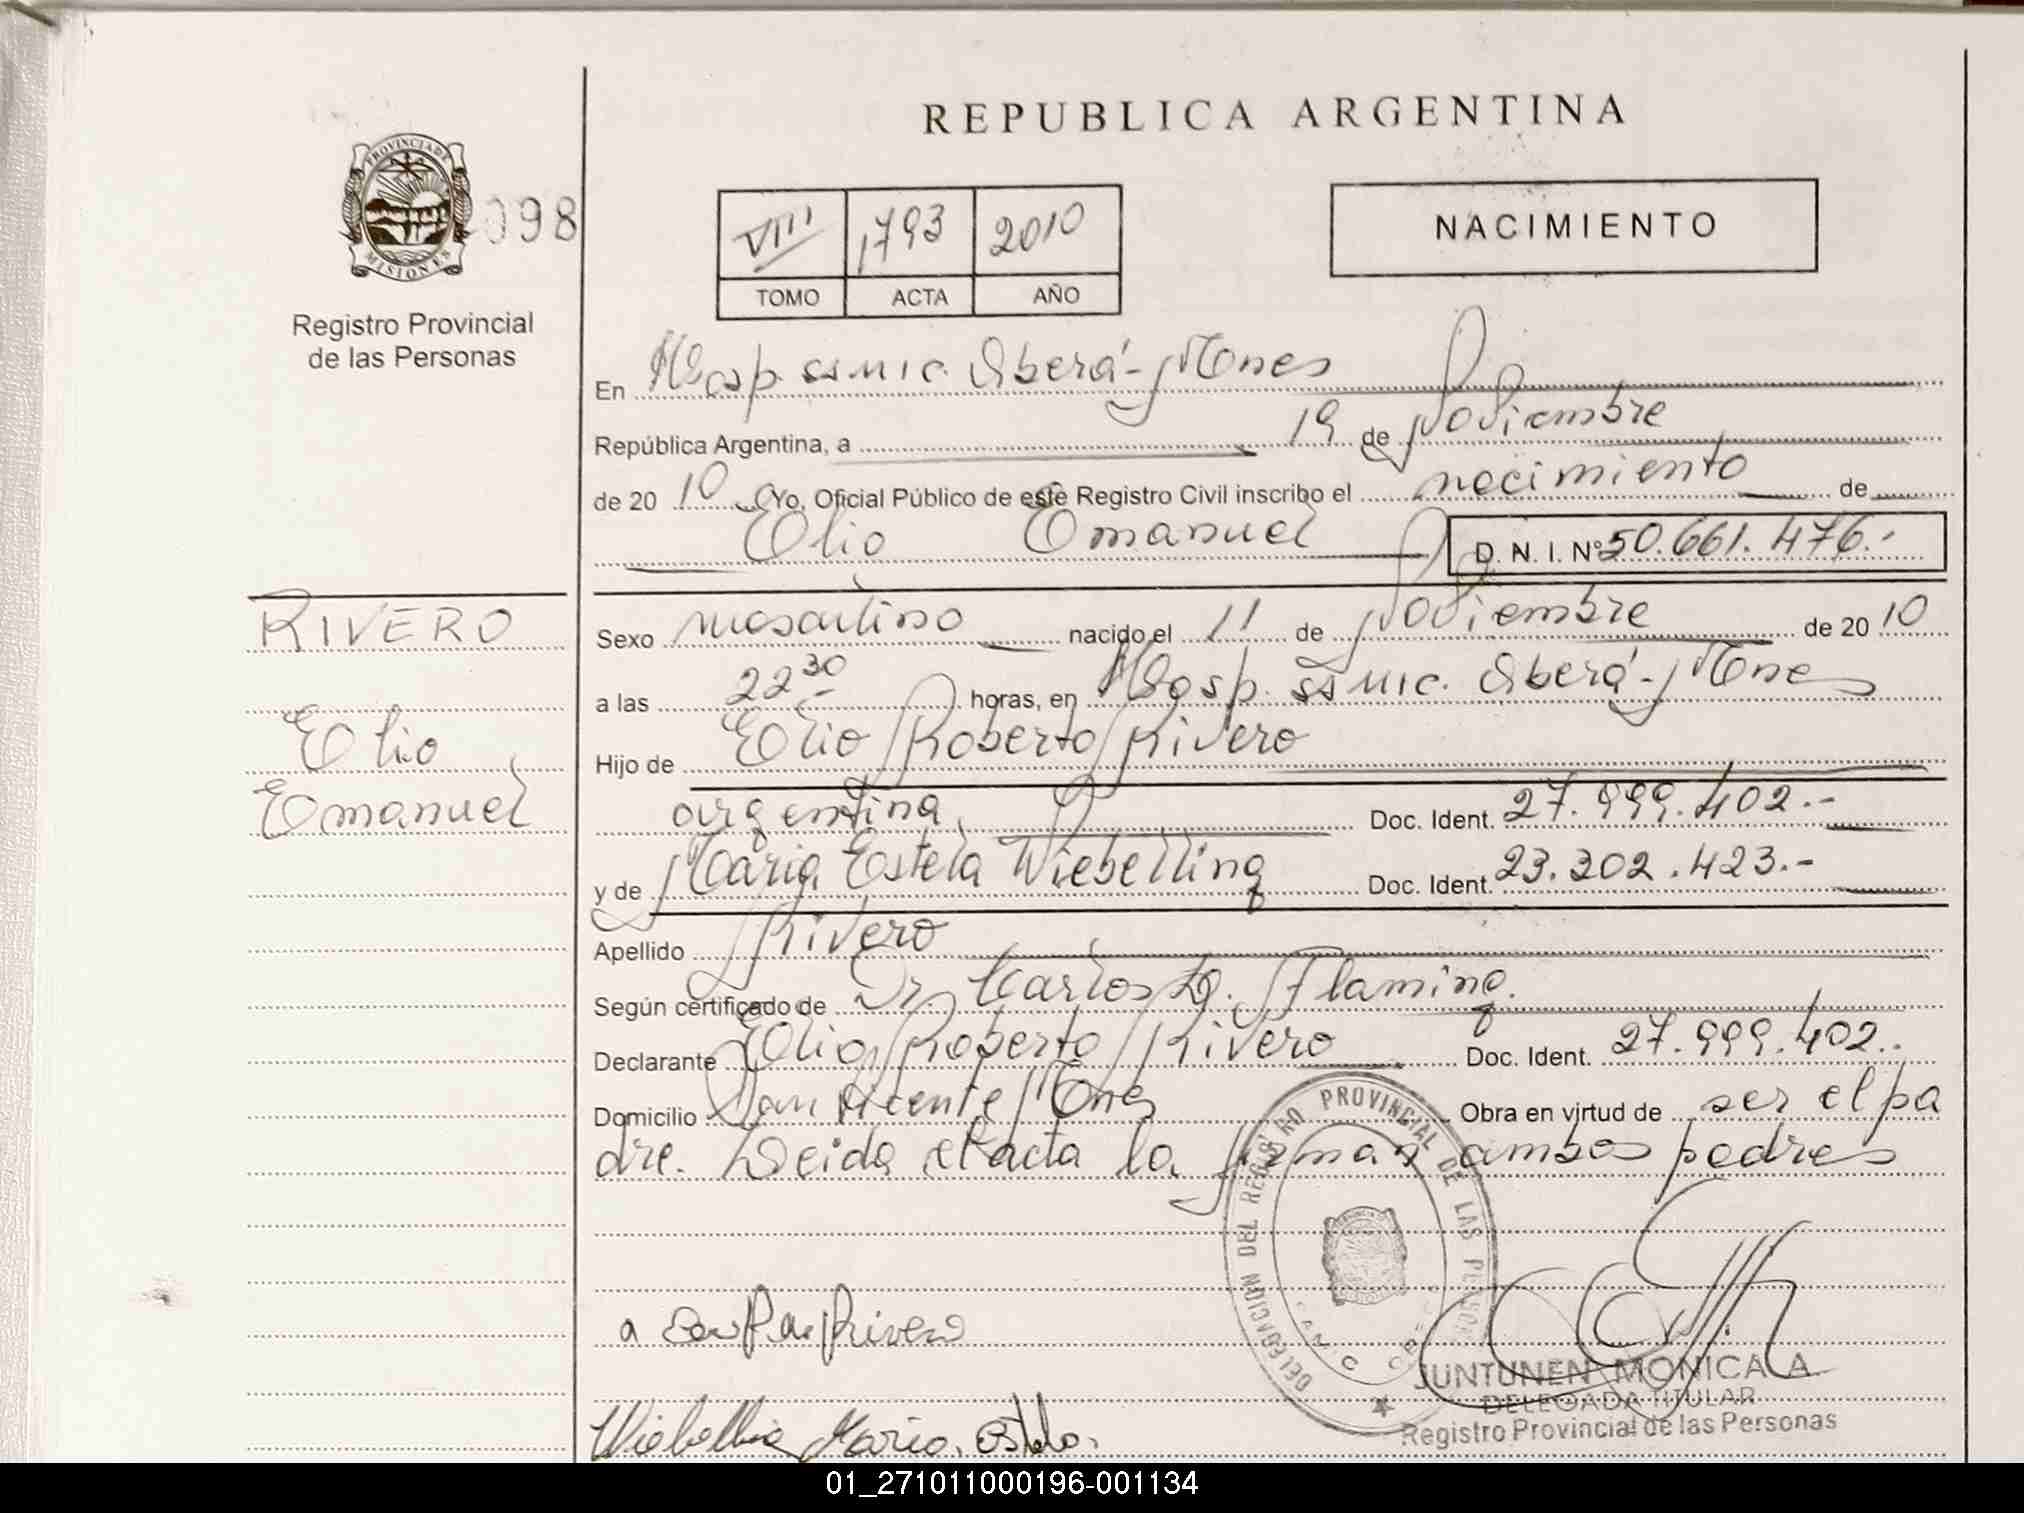 REPUBLICA ARGENTINA
PROVINCIA DE
MISIONES
098
Registro Provincial
de las Personas
VIII 1793 2010
TOMO ACTA AÑO
NACIMIENTO
En Hosp. SSMIC. Oberá-Mones
República Argentina, a 19 de Noviembre
de 20 10 Yo, Oficial Público de este Registro Civil inscribo el nacimiento de
Elio Emanuel D. N. I. Nº 50.661.476.-
RIVERO
Elio
Emanuel
Sexo masculino nacido el 11 de Noviembre de 20 10
a las 22 30 horas, en Hosp. SSMIC. Oberá-Mones
Hijo de Elio Roberto Rivero
argentina Doc. Ident. 27.999.402.-
y de Maria Estela Wiebelling Doc. Ident. 23.302.423.-
Apellido Rivero
Según certificado de Dr. Carlos Flaming.
Declarante Elio Roberto Rivero Doc. Ident. 27.999.402.
Domicilio San Vicente Mnes Obra en virtud de ser el pa
dre. Leida el acta la firman ambos padres
DELEGACION DEL REGISTRO PROVINCIAL DE LAS PERSONAS
Rivero
Maria Estela
JUNTUNEN MONICA A
DELEGADA TITULAR
Registro Provincial de las Personas
01_271011000196-001134